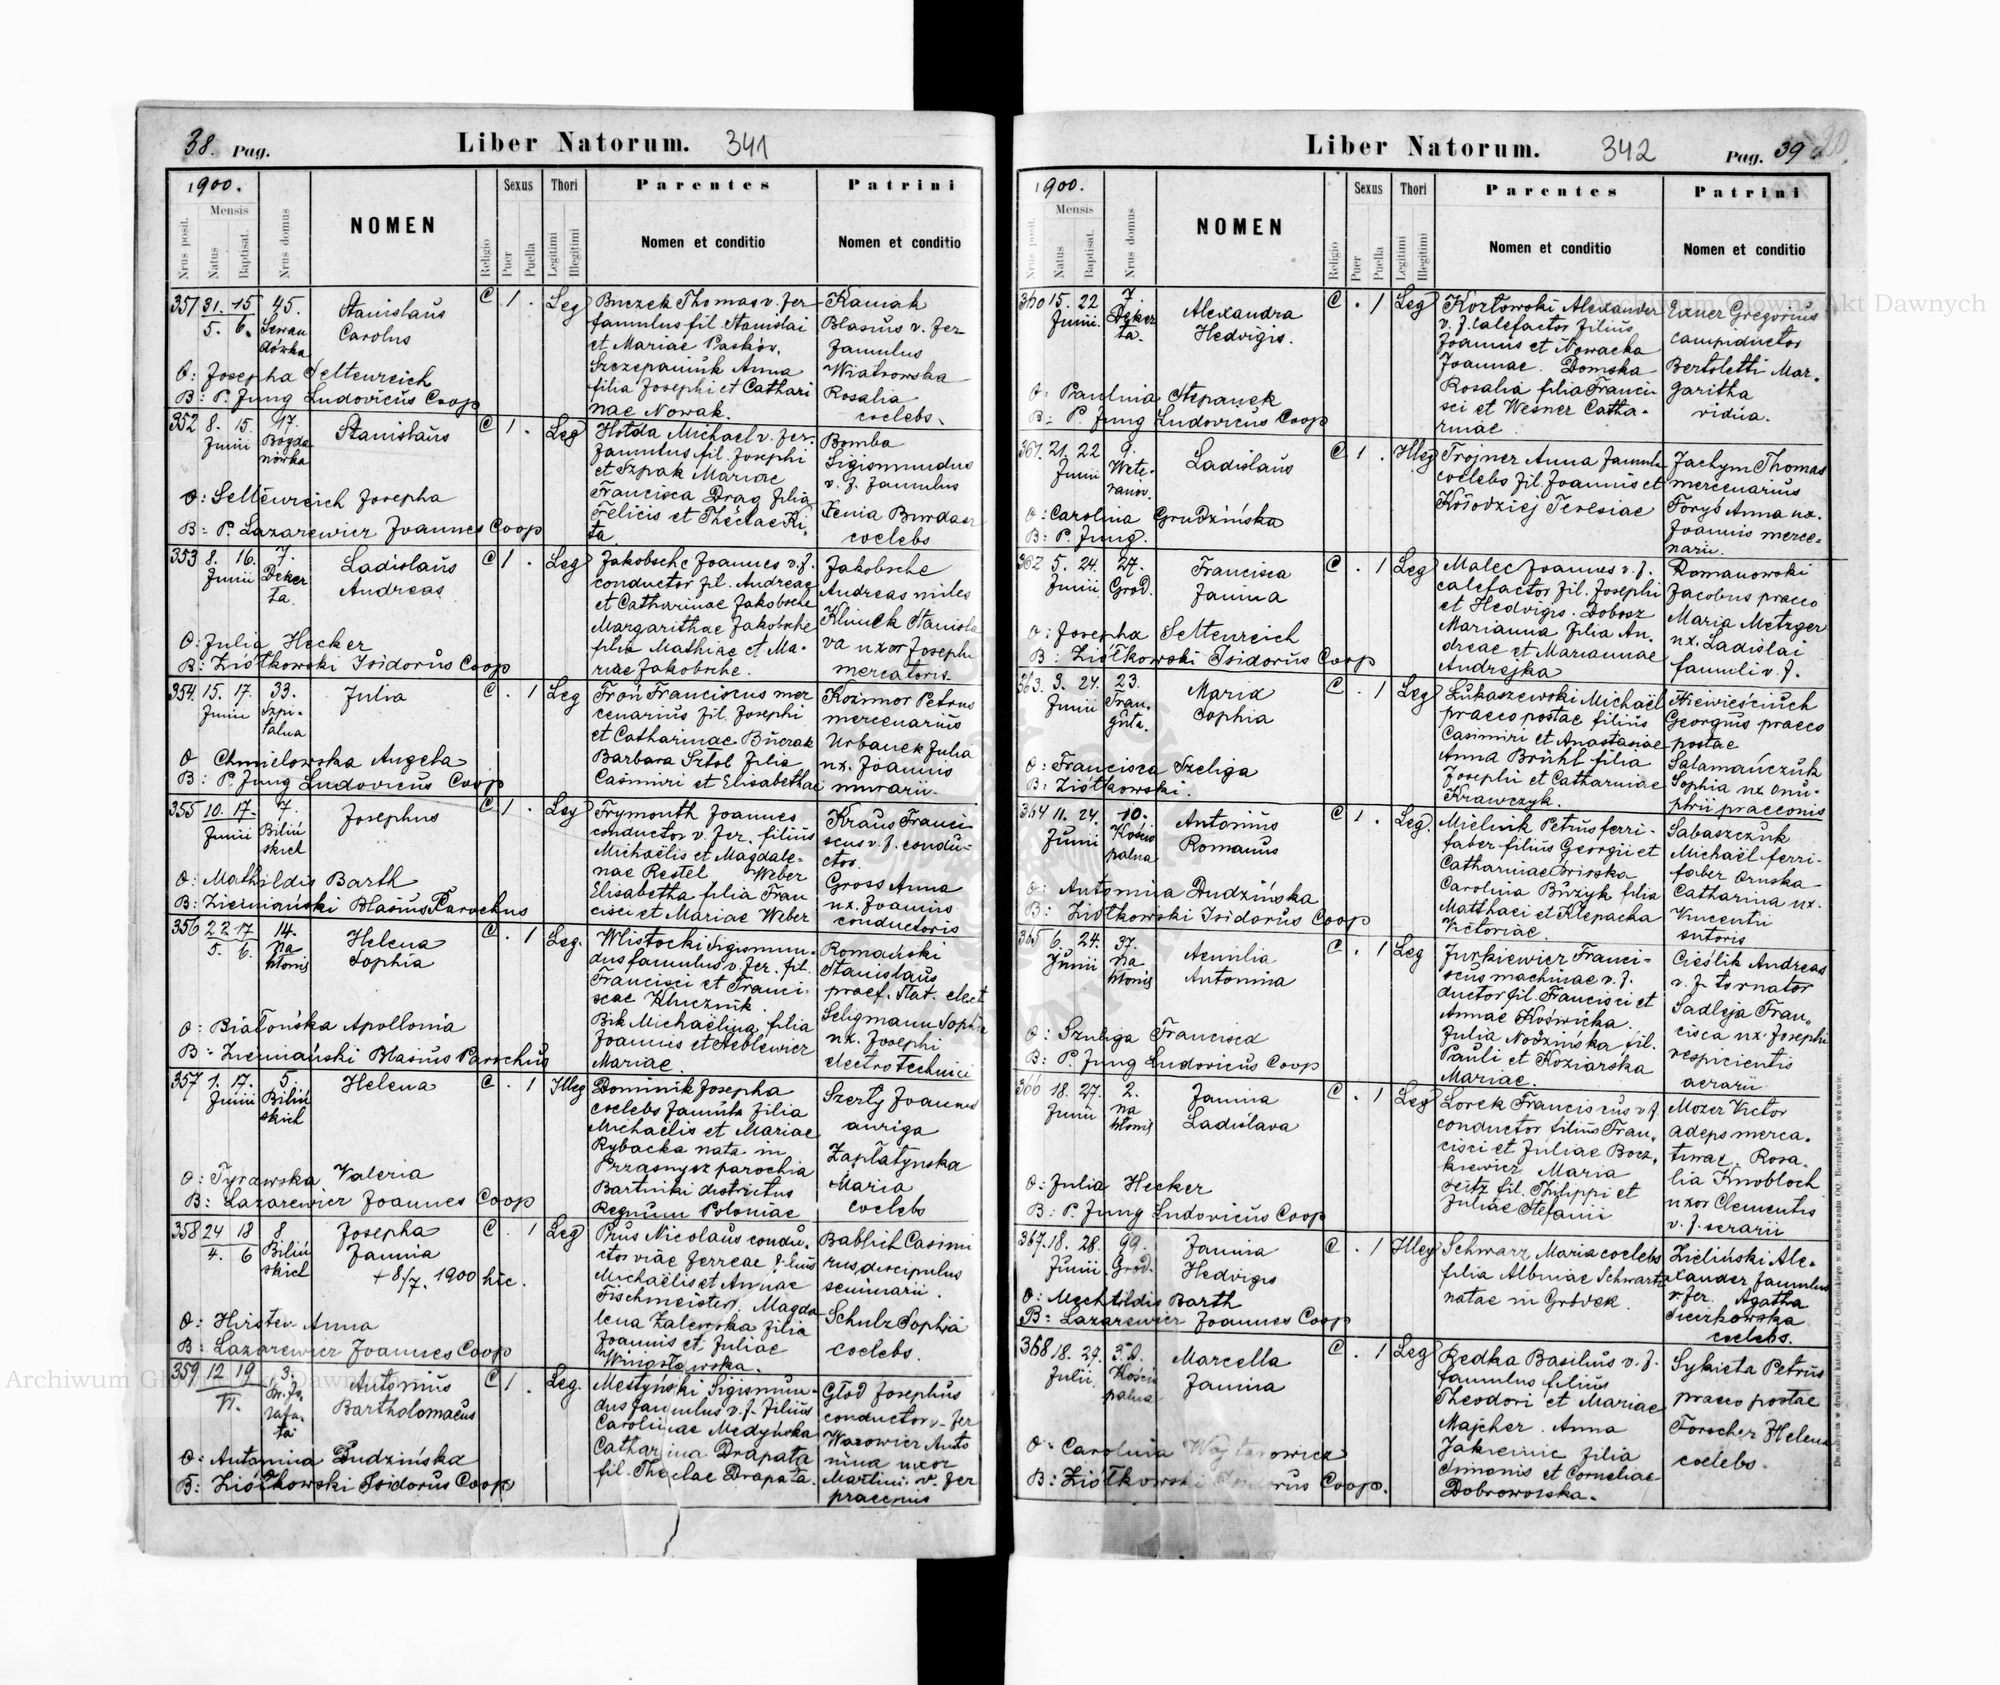 38. Pag.
Liber Natorum. 341
1900.
Mensis
Nrus posit.
Natus
Baptisat.
Nrus domus
NOMEN
Religio
Sexus
Puer
Puella
Thori
Legitimi
Illegitimi
Parentes
Nomen et conditio
Patrini
Nomen et conditio
351 31. 15 45. Stanislaus C 1 . Leg
5. 6.
Carolus
O: Josepha Seltenreich
B: P. Jung Ludovicus Coop
Buczek Thomas v. fer
famulus fil Stanislai
et Mariae
Szczepaniuk Anna
filia Josephi et Cathari
nae Nowak.
Kaniak
Blasius v. fer
famulus
Wiatrowska
Rosalia
coelebs.
352 8. 15. 17. Stanislaus C 1 . Leg
Junii Bogda
nówka
O: Seltenreich Josepha
B: P. Lazarewicz Joannes Coop
Hołda Michael v. fer.
famulus fil. Josephi
et Szpak Mariae
Francisca Drag filia
Felicis et Theclae Ki
ta
Bomba
Sigismundus
v. f. famulus
Xenia Burdasz
coelebs
353 8. 16. 7. Ladislaus C 1 . Leg
Junii Deker
ta.
Andreas
O: Julia Hecker
B: Ziółkowski Isidorus Coop
Jakobsche Joannes v. f.
conductor fil. Andreae
et Catharinae Jakobsche
Margarithae Jakobsche
filia Mathiae et Ma-
riae Jakobsche.
Jakobsche
Andreas miles
Klimek Stanisla
va uxor Josephi
mercatoris.
354 15. 17. 33. Julia C . 1 Leg
Junii Szpi-
talna
O Chmielowska Angela
B: P. Jung Ludovicus Coop
Froń Franciscus mer
cenarius fil. Josephi
et Catharinae Buczak
Barbara Sztol filia
Casimiri et Elisabethae
Kozimor Petrus
mercenarius
Urbanek Julia
ux. Joannis
murarii.
355 10. 17. 7. Josephus C 1 . Leg
Junii Biliń
skich
O: Mathildis Barth
B: Ziemiański Blasius Parochus
Frymouth Joannes
conductor v. fer. filius
Michaëlis et Magdale-
nae Restel Weber
Elisabetha filia Fran
cisci et Mariae Weber
Kraus Franci
scus v. f. condu-
ctor
Gross Anna
ux. Joannis
conductoris
356 22 17 14. Helena C . 1 Leg.
5. 6. Na
błonie
Sophia
O: Białońska Apollonia
B: Ziemiański Blasius Parochus
Wlistocki Sigismun-
dus famulus v. fer. fil.
Francisci et Franci-
scae Klucznik.
Bik Michaëlina filia
Joannis et
Mariae.
Romański
Stanislaus
praef. Stat. elect
Seligmann Sophia
ux. Josephi
electrotechnici
357 1. 17. 5. Helena C . 1 Illeg
Junii Biliń
skich
O: Tyrawska Valeria
B: Lazarewicz Joannes Coop
Dominik Josepha
coelebs famula filia
Michaëlis et Mariae
Rybacka nata in
Przasnysz parochia
Bartniki districtus
Regnum Poloniae
Szerty Joannes
auriga
Zapłatynska
Maria
coelebs
358 24 18 8 Josepha C . 1 Leg
4. 6 Biliń
skich
Janina
+ 8/7. 1900 hic.
O: Hirsten Anna
B: Lazarewicz Joannes Coop
Prus Nicolaus condu-
ctor viae ferreae filius
Michaëlis et Annae
Fischmeister. Magda
lena Zalewska filia
Joannis et Juliae
Wingsławska.
Bablich Casimi
rus discipulus
seminarii.
Schulz Sophia
coelebs.
359 12 19 3. Antonius C 1 . Leg.
VI.
Bartholomaeus
O: Antonina Dudzińska
B: Ziółkowski Isidorus Coop
Mestyński Sigismun-
dus famulus v. f. filius
Carolinae Medyńska
Catharina Drapała
fil. Theclae Drapała.
Głod Josephus
conductor v. fer
Warowicz Anto
nina uxor
Martini v. fer
praeconis
Liber Natorum. 342
Pag. 39
1900.
Mensis
Nrus posit.
Natus
Baptisat.
Nrus domus
NOMEN
Religio
Sexus
Puer
Puella
Thori
Legitimi
Illegitimi
Parentes
Nomen et conditio
Patrini
Nomen et conditio
360 15. 22 7 Alexandra C . 1 Leg
Junii. Deker
ta.
Hedvigis.
O: Paulina Stepanek
B: P. Jung Ludovicus Coop
Kozłowski Alexander
v. f. calefactor filius
Joannis et Nowacka
Joannae. Domska
Rosalia filia Franci-
sci et Wesner Catha-
rinae
Exner Gregorius
campiductor
Bertoletti Mar-
garitha
vidua.
361 21. 22 9. Ladislaus C 1 . Illeg
Junii Wete-
ranów.
O: Carolina Grudzińska
B: P. Jung.
Trojner Anna famula
coelebs fil. Joannis et
Kołodziej Teresiae
Jachym Thomas
mercenarius
Foryś Anna ux.
Joannis merce-
narii.
362 5. 24. 27. Francisca C . 1 Leg
Junii Grod.
Janina
O: Josepha Seltenreich
B: Ziółkowski Isidorus Coop
Malec Joannes v. f.
calefactor fil. Josephi
et Hedvigis. Dobosz
Marianna filia An-
dreae et Mariannae
Andrejka
Romanowski
Jacobus praeco
Maria Metzger
ux. Ladislai
famuli v. f.
363. 3. 24. 23. Maria C . 1 Leg
Junii Fran-
guta.
Sophia
O: Francisca Szeliga
B: Ziółkowski.
Łukaszewski Michaël
praeco postae filius
Casimiri et Anastasiae
Anna Brühl filia
Josephi et Catharinae
Krawczyk.
Niewieściuch
Georgius praeco
postae
Salamańczuk
Sophia ux Onu-
phrii praeconis
364 11. 24. 10. Antonius C 1 . Leg.
Junii Kościo
palna
Romanus
O: Antonina Dudzińska
B: Ziółkowski Isidorus Coop
Mielnik Petrus ferri-
faber filius Georgii et
Catharinae
Carolina Buzyk filia
Matthaei et Klepacka
Victoriae.
Sabaszczuk
Michaël ferri-
faber Ornska
Catharina ux.
Vincentii
sutoris
365 6. 24. 37. Aemilia C . 1 Leg
Junii na
błonie
Antonina
O: Szeliga Francisca
B: P. Jung Ludovicus Coop
Jurkiewicz Franci-
scus machinae v. f.
ductor fil. Francisci et
Annae Kościcka.
Julia Nodzińska fil.
Pauli et Koziarska
Mariae.
Cieślik Andreas
v. f. tornator
Sadleja Fran-
cisca ux. Josephi
respicientis
aerarii
366 18. 27. 2. Janina C . 1 Leg
Junii na
błonie
Ladislava
O: Julia Hecker
B: P. Jung Ludovicus Coop
Lorek Franciscus v f.
conductor filius Fran-
cisci et Juliae Bocz-
kiewicz Maria
Seitz fil. Philippi et
Juliae Stefanii
Mozer Victor
adeps merca-
turae. Rosa-
lia Knobloch
uxor Clementis
v. f. serarii
367. 18. 28. 99. Janina C . 1 Illeg
Junii Grod.
Hedvigis
O: Mechtildis Barth
B: Lazarewicz Joannes Coop
Schwarz Maria coelebs
filia Albinae Schwartz
natae in Gródek.
Zieliński Ale-
xander famulus
v. fer. Agatha
Sieczkowska
coelebs.
368 18. 27. Marcella C . 1 Leg
Julii Kościo
palna
Janina
O: Carolina Wojtarowicz
B: Ziółkowski Isidorus Coop.
Redka Basilius v. f.
famulus filius
Theodori et Mariae
Majcher. Anna
Jakiemic filia
Simonis et Corneliae
Dobrowolska.
Sykieta Petrus
praeco postae
Forscher Helena
coelebs.
Do nabycia w drukarni katolickiej J. Chęcińskiego w zabudowaniu OO. Bernardynów we Lwowie.
Archiwum Główne Akt Dawnych
Archiwum Główne Akt Dawnych